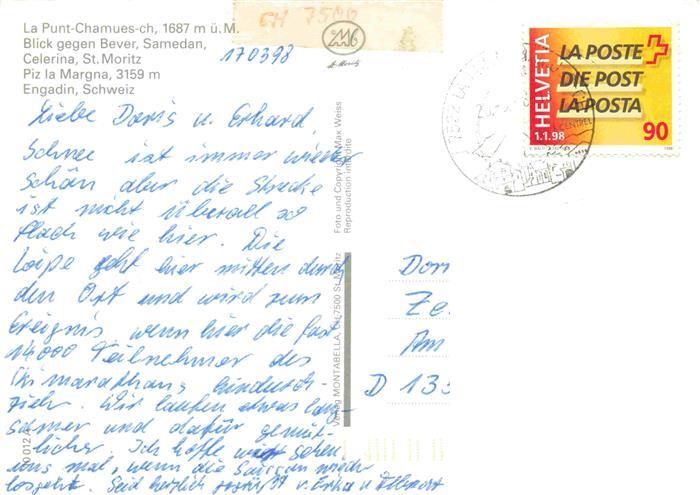 La Punt-Chamues-ch, 1687 m ü. M.
Blick gegen Bever, Samedan,
Celerina, St. Moritz
Piz la Margna, 3159 m
Engadin, Schweiz
CH 7500
St. Moritz
170398
Liebe Doris u. Erhard,
Schnee ist immer wieder
schön aber die Strecke
ist nicht überall so
flach wie hier. Die
Loipe geht hier mitten durch
den Ort und wird zum
Ereignis wenn hier die fast
14000 Teilnehmer des
Skimarathons hindurch-
ziehn. Wir laufen etwas lang-
samer und dafür gemüt-
licher. Ich hoffe wir sehen
uns mal, wenn die Saison wieder
losgeht. Seid herzlich gegrüßt v. Erika u.
Foto und Copyright Max Weiss
Reproduction interdite
Verlag MONTABELLA, CH-7500 St. Moritz
HELVETIA
1.1.98
LA POSTE
DIE POST
LA POSTA
90
1998
7522 LA
Dor
Ze
Am
D 135